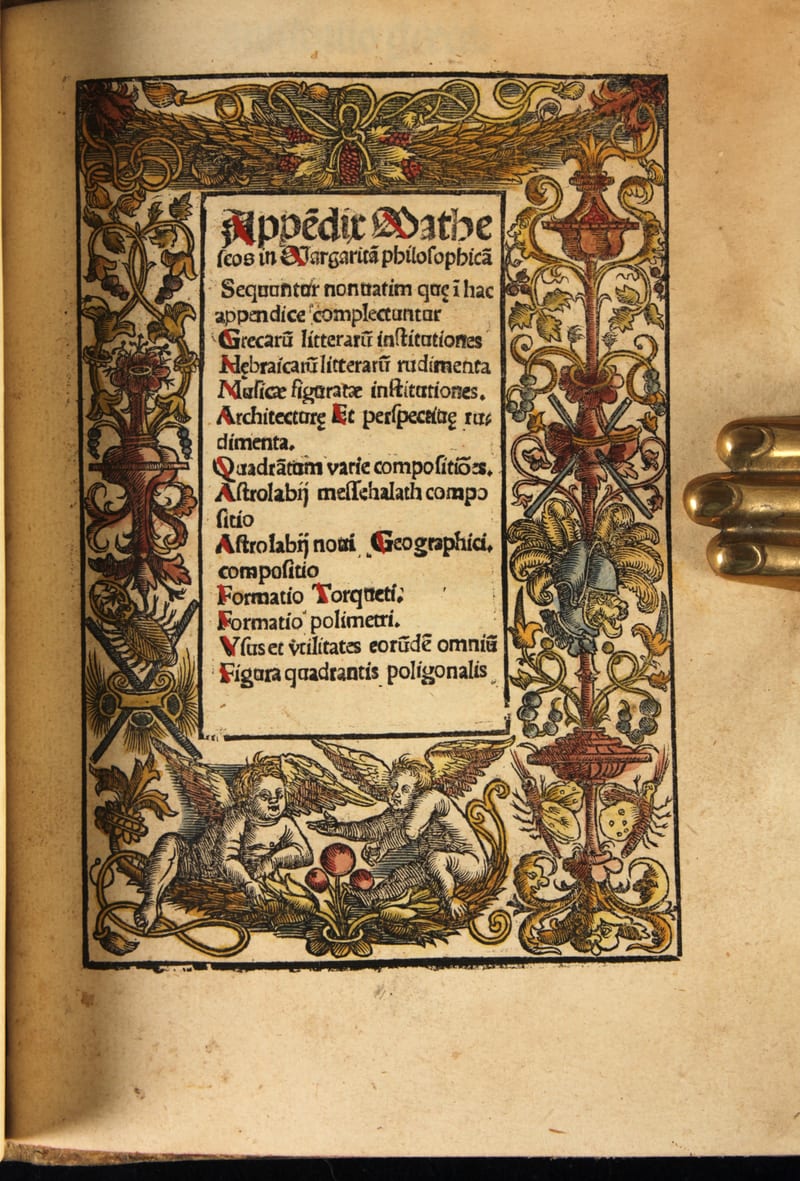 Appēdix Mathe
ſeos in Margaritā philoſophicā
Sequuntur nonuatim quę ī hac
appendice complectuntur
Grecarū litterarū inſtitutiones
Hebraicarū litterarū rudimenta
Muſicæ figuratæ inſtitutiones.
Architecturę Et perſpectiuę ru⸗
dimenta.
Quadrātum varie compoſitiões.
Aſtrolabij meſſehalath compo
ſitio
Aſtrolabij noui Geographici.
compoſitio
Formatio Torqueti.
Formatio polimetri.
Vſus et vtilitates eorūdē omniū
Figura quadrantis poligonalis